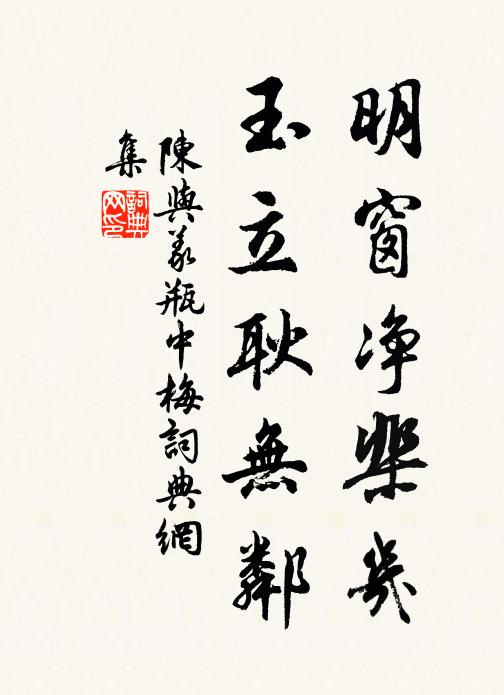 明窗净棐幾
玉立耿無鄰
陳與義瓶中梅詞典網
集
詞典网印